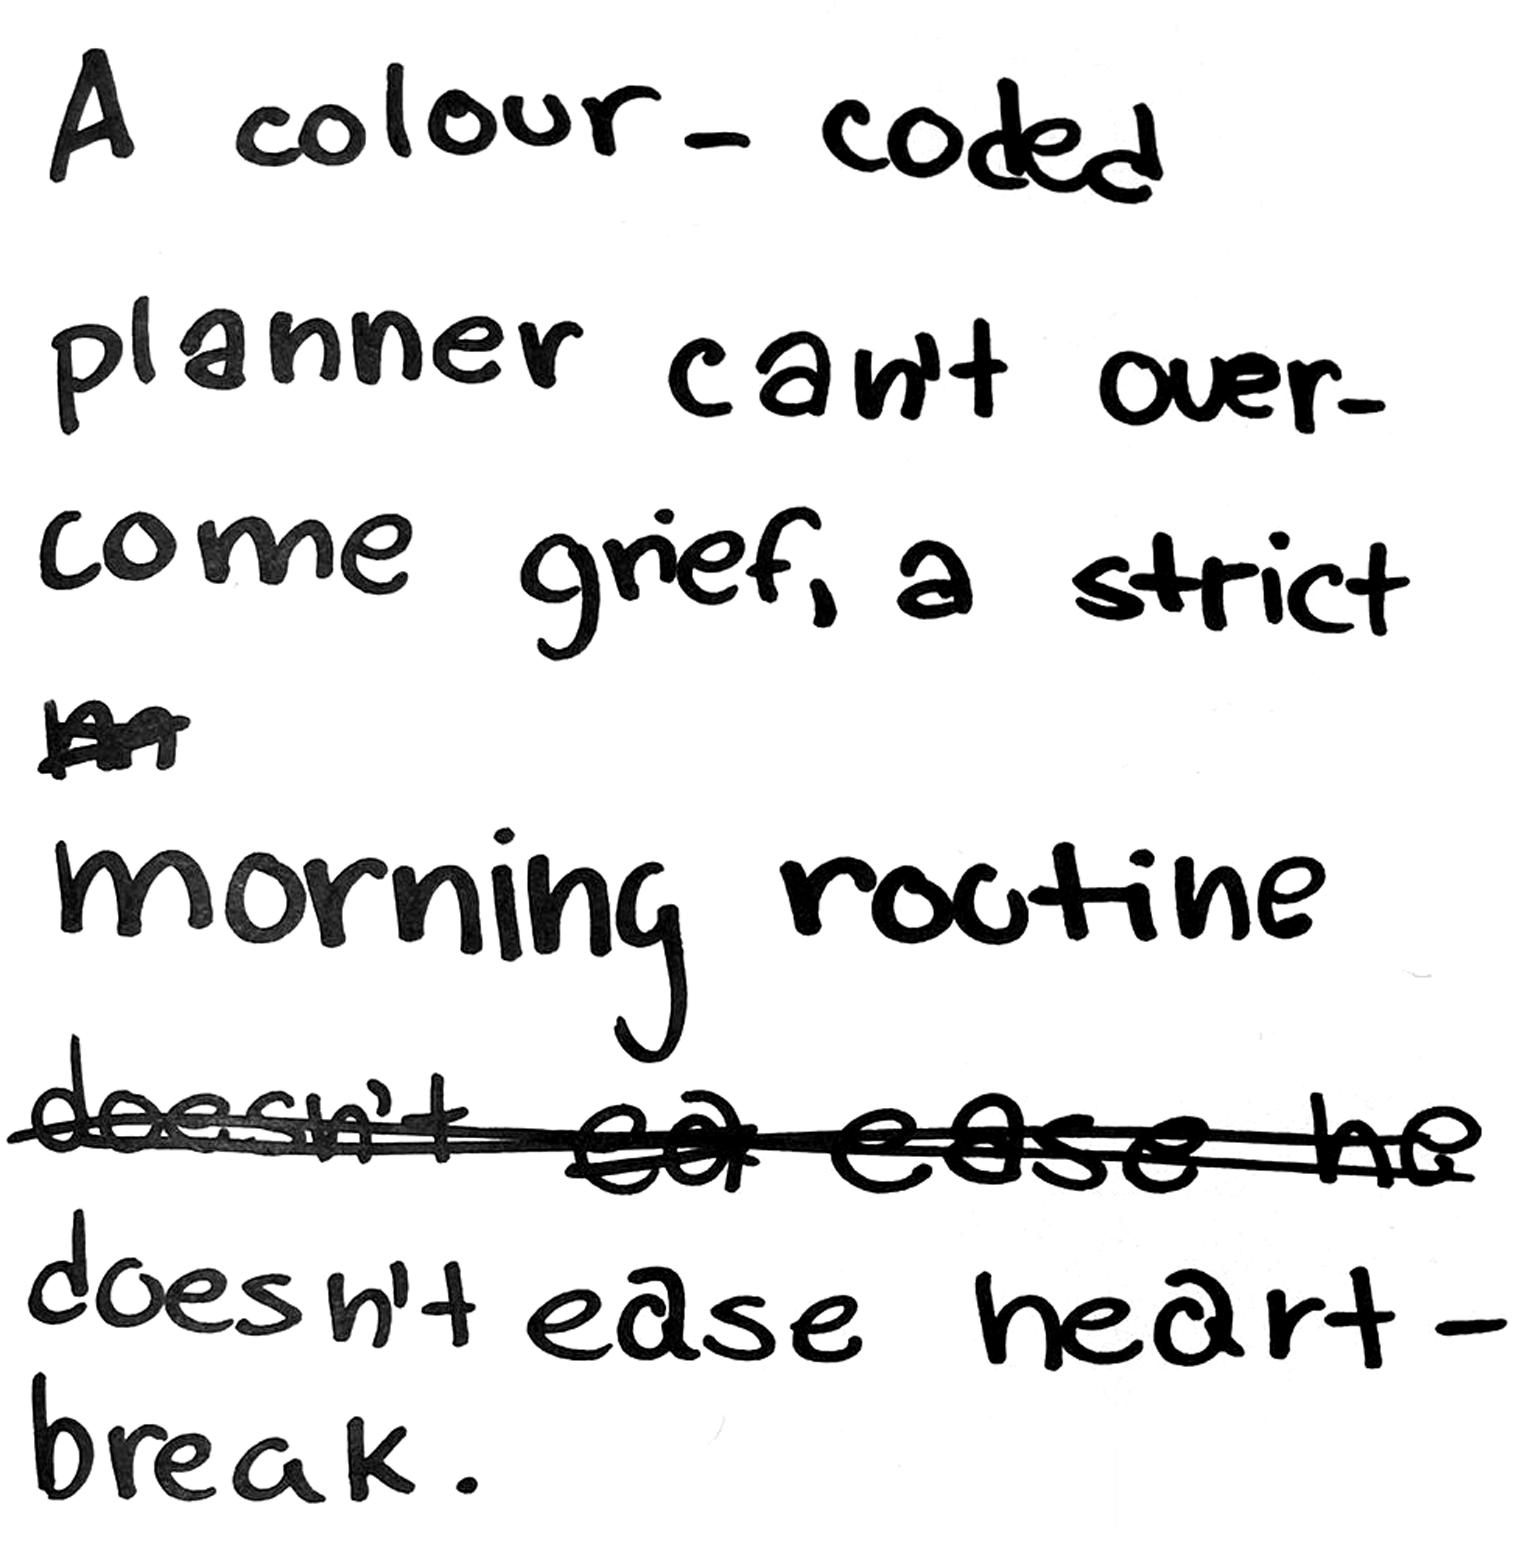 A colour-coded
planner can't over-
come grief, a strict
morning routine
doesn't ea ease he
doesn't ease heart-
break.